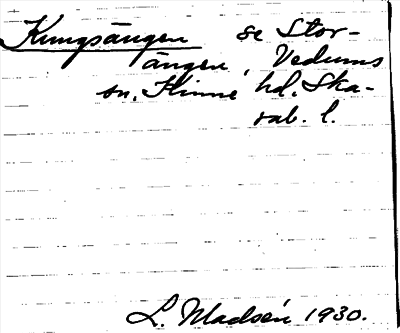 Kungsängen se Stor-
ängen, Vedums
sn. Kinne hd. Ska-
rab. l.
L. Madsén 1930.